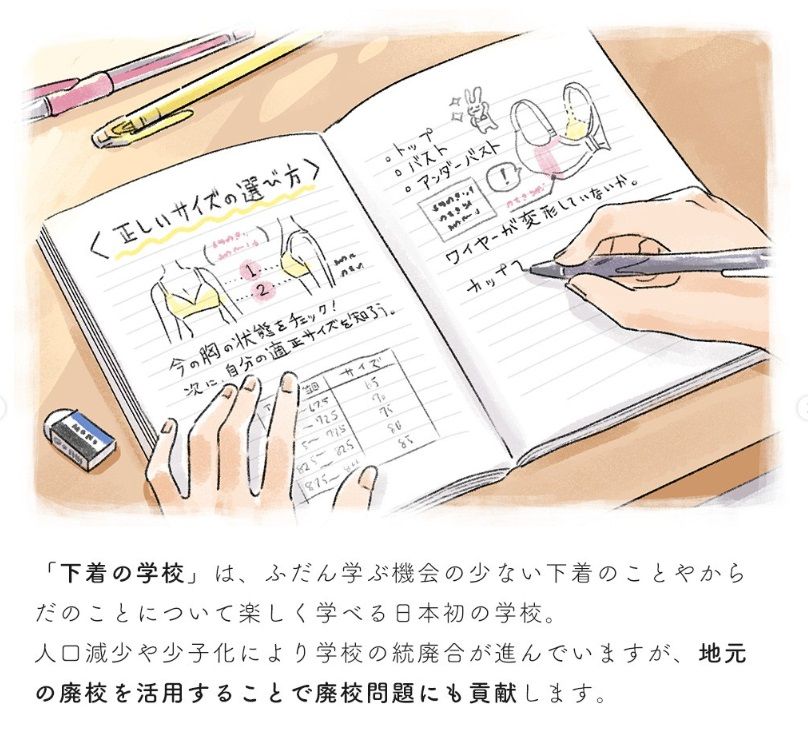 〈正しいサイズの選び方〉
1.
2.
今の胸の状態をチェック!
次に、自分の適正サイズを知ろう。
サイズ
65
70
75
80
85
。トップ
。バスト
。アンダーバスト
!
ワイヤーが変形していないか。
カップ
MONO
「下着の学校」は、ふだん学ぶ機会の少ない下着のことやから
だのことについて楽しく学べる日本初の学校。
人口減少や少子化により学校の統廃合が進んでいますが、地元
の廃校を活用することで廃校問題にも貢献します。